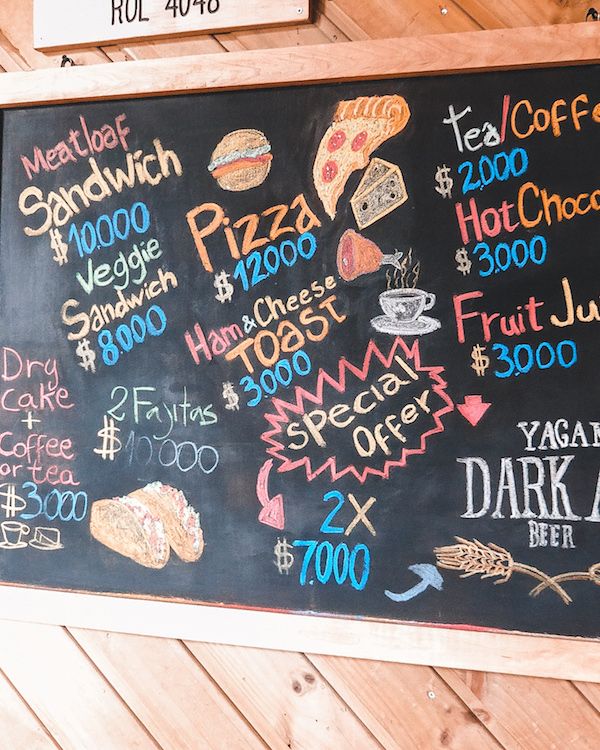 ROL 4048
Meatloaf
Sandwich
$10.000
Veggie
Sandwich
$8.000
Dry
Cake
+
Coffee
or tea
$3.000
2 Fajitas
$10.000
Pizza
$12000
Ham & Cheese
TOAST
$3000
Special
Offer
2X
$7.000
Tea/Coffe
$2.000
Hot Choco
$3.000
Fruit Ju
$3.000
YAGAN
DARK A
BEER